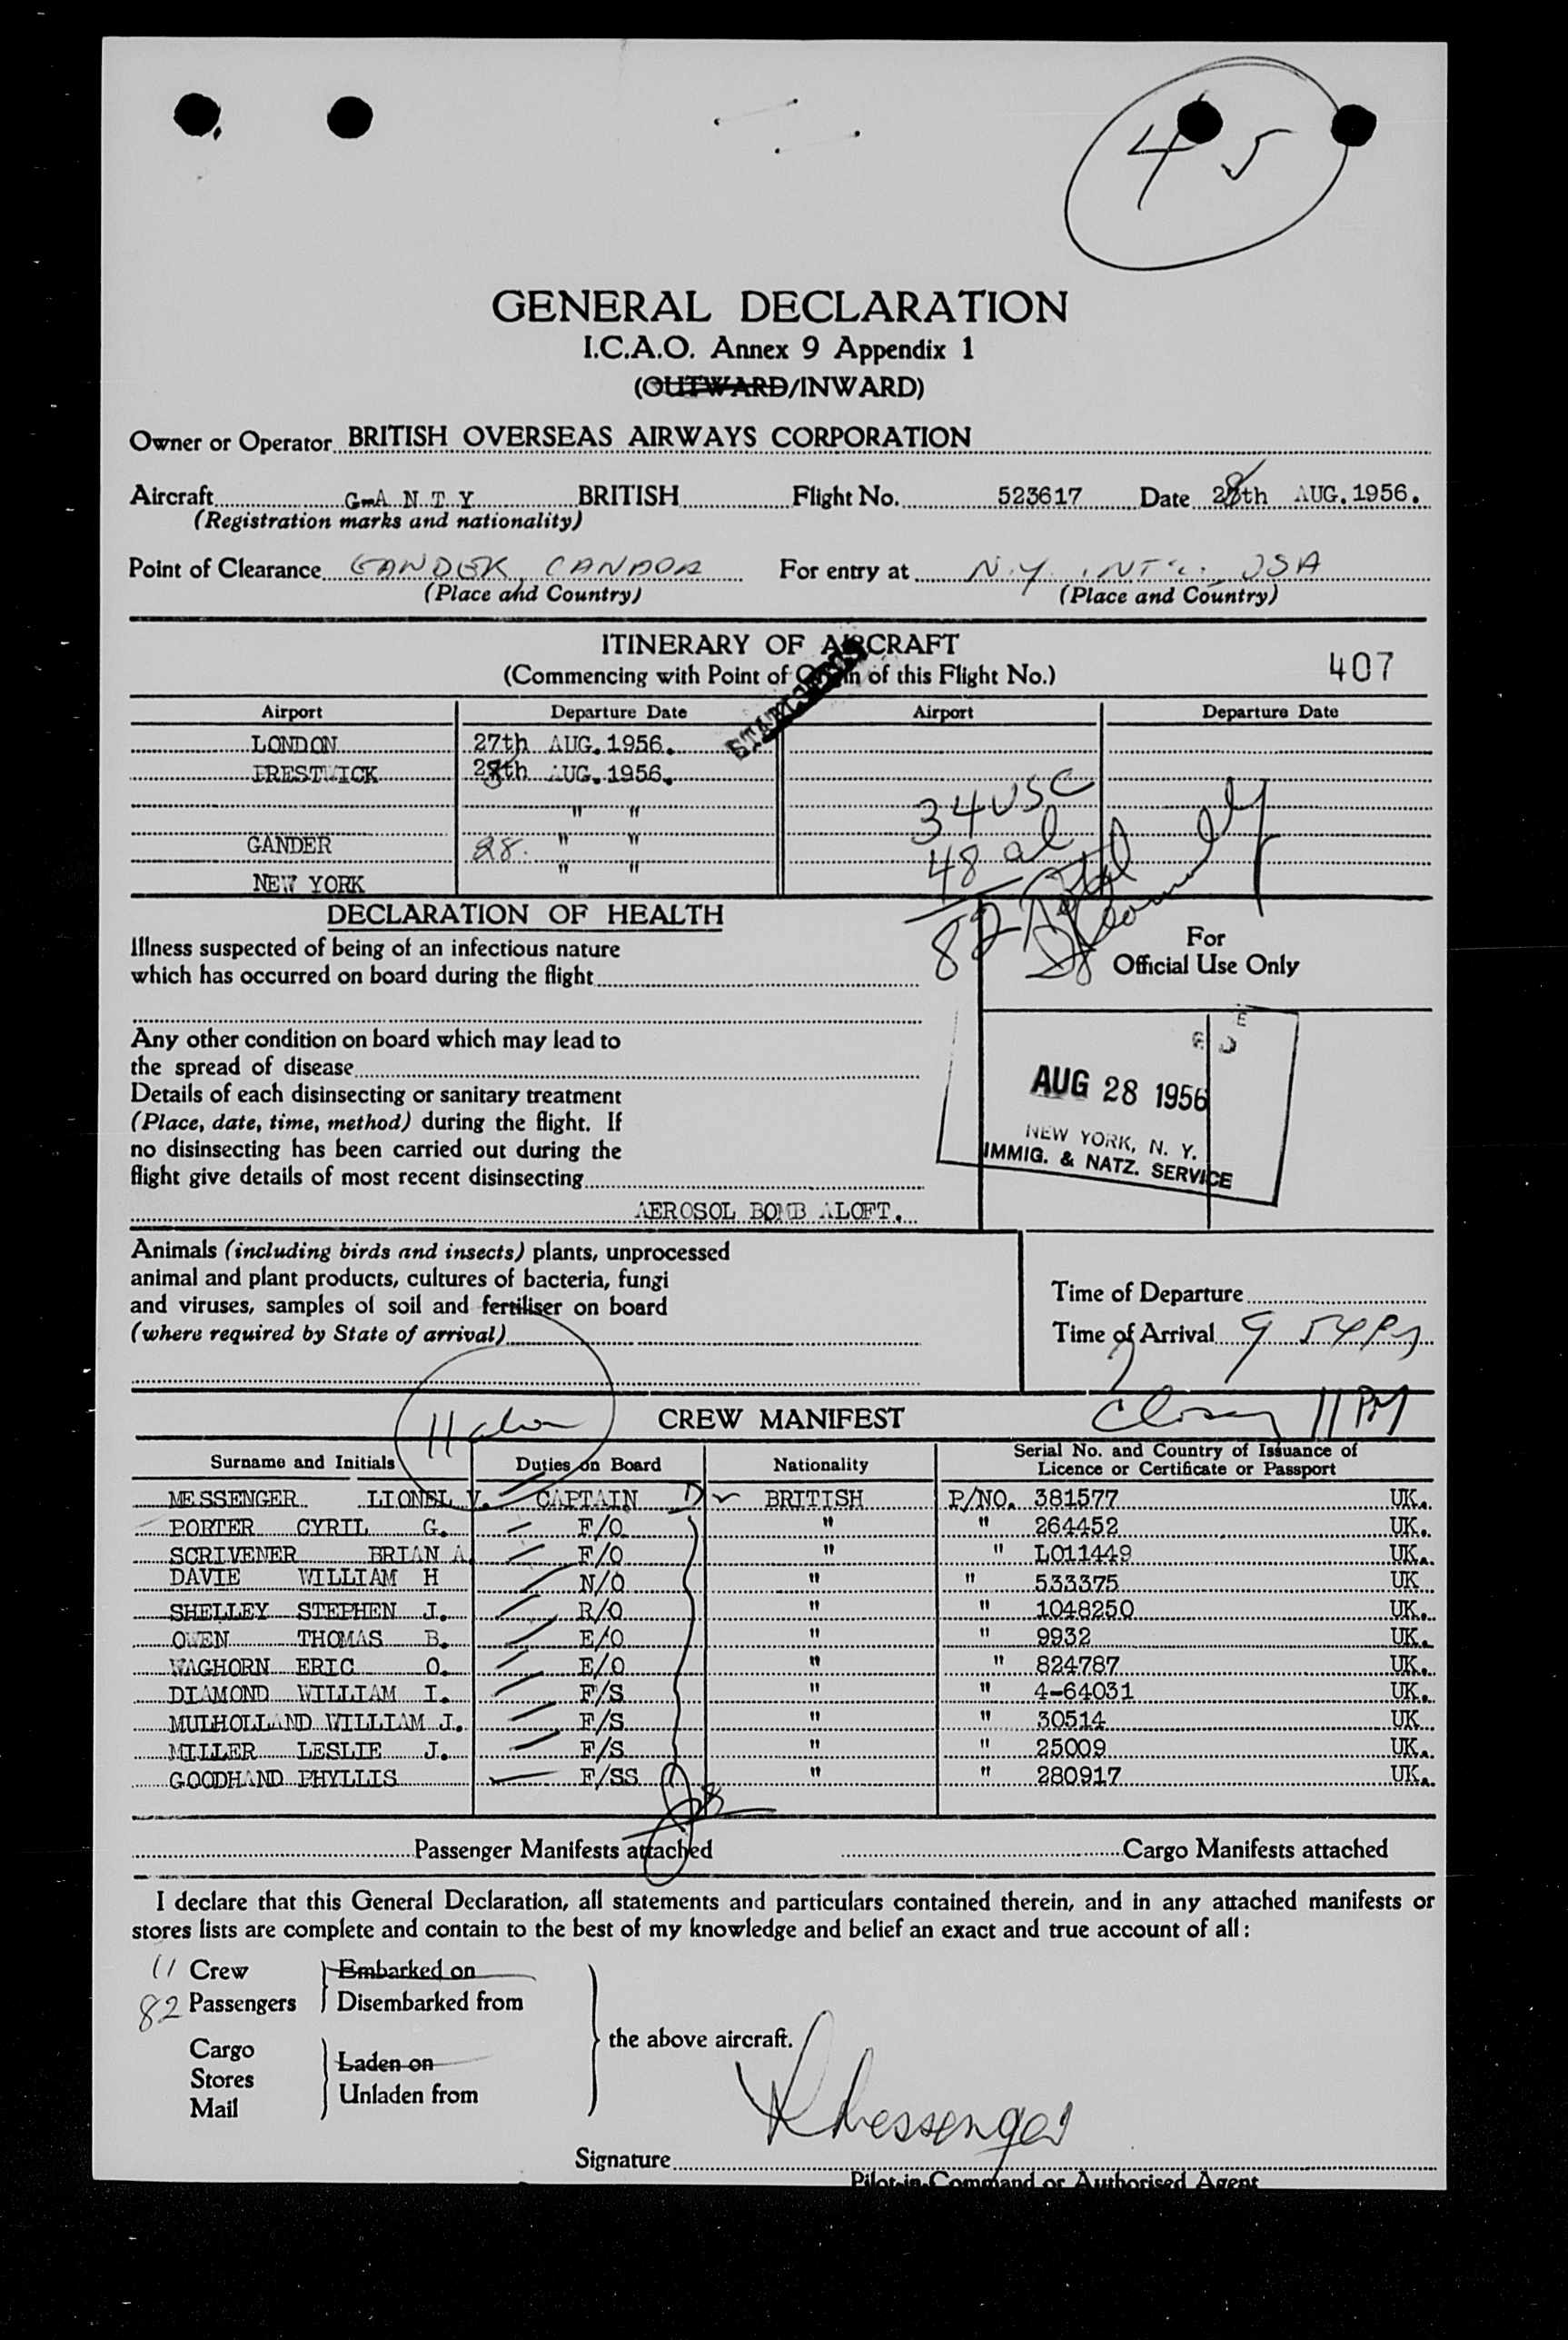 4 5
GENERAL DECLARATION
I.C.A.O. Annex 9 Appendix 1
(OUTWARD/INWARD)
Owner or Operator BRITISH OVERSEAS AIRWAYS CORPORATION
Aircraft G-A N T Y BRITISH Flight No. 523617 Date 28th AUG. 1956.
(Registration marks and nationality)
Point of Clearance GANDER, CANADA For entry at N.Y. INT'L. USA
(Place and Country) (Place and Country)
ITINERARY OF AIRCRAFT
(Commencing with Point of Origin of this Flight No.) 407
Airport Departure Date Airport Departure Date
LONDON 27th AUG. 1956.
PRESTWICK 28th AUG. 1956.
" "
34 USC
GANDER 28. " "
48 al
" "
NEW YORK
82 Total
DECLARATION OF HEALTH
Illness suspected of being of an infectious nature
which has occurred on board during the flight
For
Official Use Only
Any other condition on board which may lead to
the spread of disease
Details of each disinsecting or sanitary treatment
(Place, date, time, method) during the flight. If
no disinsecting has been carried out during the
flight give details of most recent disinsecting
AEROSOL BOMB ALOFT.
AUG 28 1956
NEW YORK, N. Y.
IMMIG. & NATZ. SERVICE
Animals (including birds and insects) plants, unprocessed
animal and plant products, cultures of bacteria, fungi
and viruses, samples of soil and fertiliser on board
(where required by State of arrival)
Time of Departure
Time of Arrival 9 54 PM
11 PM
CREW MANIFEST
Surname and Initials Duties on Board Nationality Serial No. and Country of Issuance of
Licence or Certificate or Passport
MESSENGER LIONEL V. CAPTAIN D BRITISH P/NO. 381577 UK.
PORTER CYRIL G. F/O " " 264452 UK.
SCRIVENER BRIAN A. F/O " " L011449 UK.
DAVIE WILLIAM H N/O " " 533375 UK
SHELLEY STEPHEN J. R/O " " 1048250 UK.
OWEN THOMAS B. E/O " " 9932 UK.
WAGHORN ERIC O. E/O " " 824787 UK.
DIAMOND WILLIAM I. F/S " " 4-64031 UK.
MULHOLLAND WILLIAM J. F/S " " 30514 UK
MILLER LESLIE J. F/S " " 25009 UK.
GOODHAND PHYLLIS F/SS " " 280917 UK.
Passenger Manifests attached Cargo Manifests attached
I declare that this General Declaration, all statements and particulars contained therein, and in any attached manifests or
stores lists are complete and contain to the best of my knowledge and belief an exact and true account of all:
11 Crew Embarked on
82 Passengers Disembarked from
the above aircraft.
Cargo
Stores
Mail
Laden on
Unladen from
Messenger
Signature
Pilot-in-Command or Authorised Agent